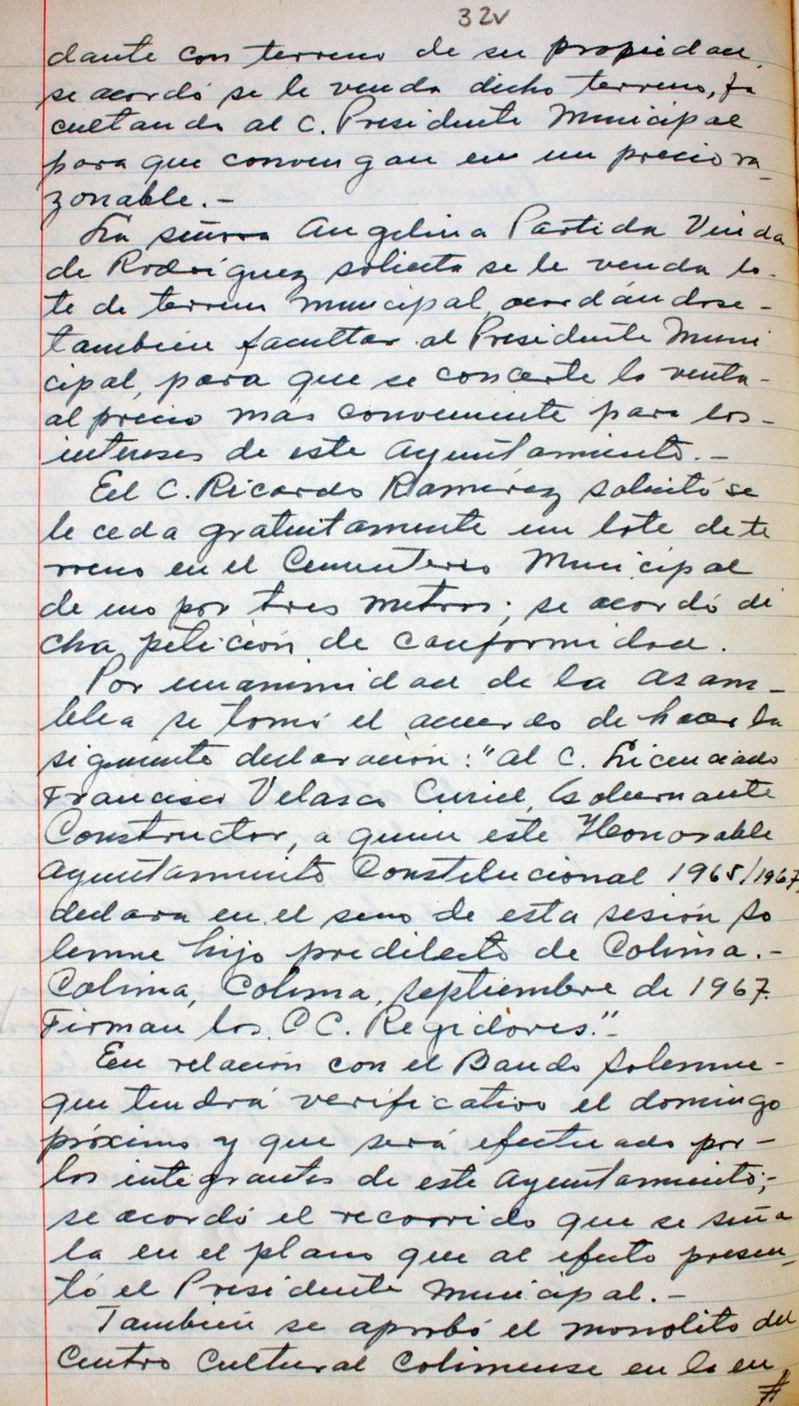 32v
dante con terreno de su propiedad,
se acordó se le venda dicho terreno, fa
cultando al C. Presidente Municipal
para que convengan en un precio ra_
zonable.-
La señora Angelina Partida Viuda
de Rodríguez solicita se le venda lo-
te de terreno municipal, acordándose-
también facultar al Presidente Muni
cipal, para que se concerte la venta-
al precio mas conveniente para los-
intereses de este Ayuntamiento.-
El C. Ricardo Ramírez solicitó se
le ceda gratuitamente un lote de te
rreno en el Cementerio Municipal
de uno por tres metros; se acordó di
cha petición de conformidad.
Por unanimidad de la asam_
blea se tomó el acuerdo de hacer la
siguiente declaración: "Al C. Licenciado
Francisco Velasco Curiel, Gobernante
Constructor, a quien este Honorable
Ayuntamiento Constitucional 1965/1967,
declara en el seno de esta sesión so
lemne hijo predilecto de Colima.-
Colima, Colima, septiembre de 1967.
Firman los CC. Regidores."-
En relación con el Bando Solemne-
que tendrá verificativo el domingo
próximo y que será efectuado por-
los integrantes de este Ayuntamiento;-
se acordó el recorrido que se seña
la en el plano que al efecto presen_
tó el Presidente Municipal.-
También se aprobó el monolito del
Centro Cultural Colimense en la en_
#